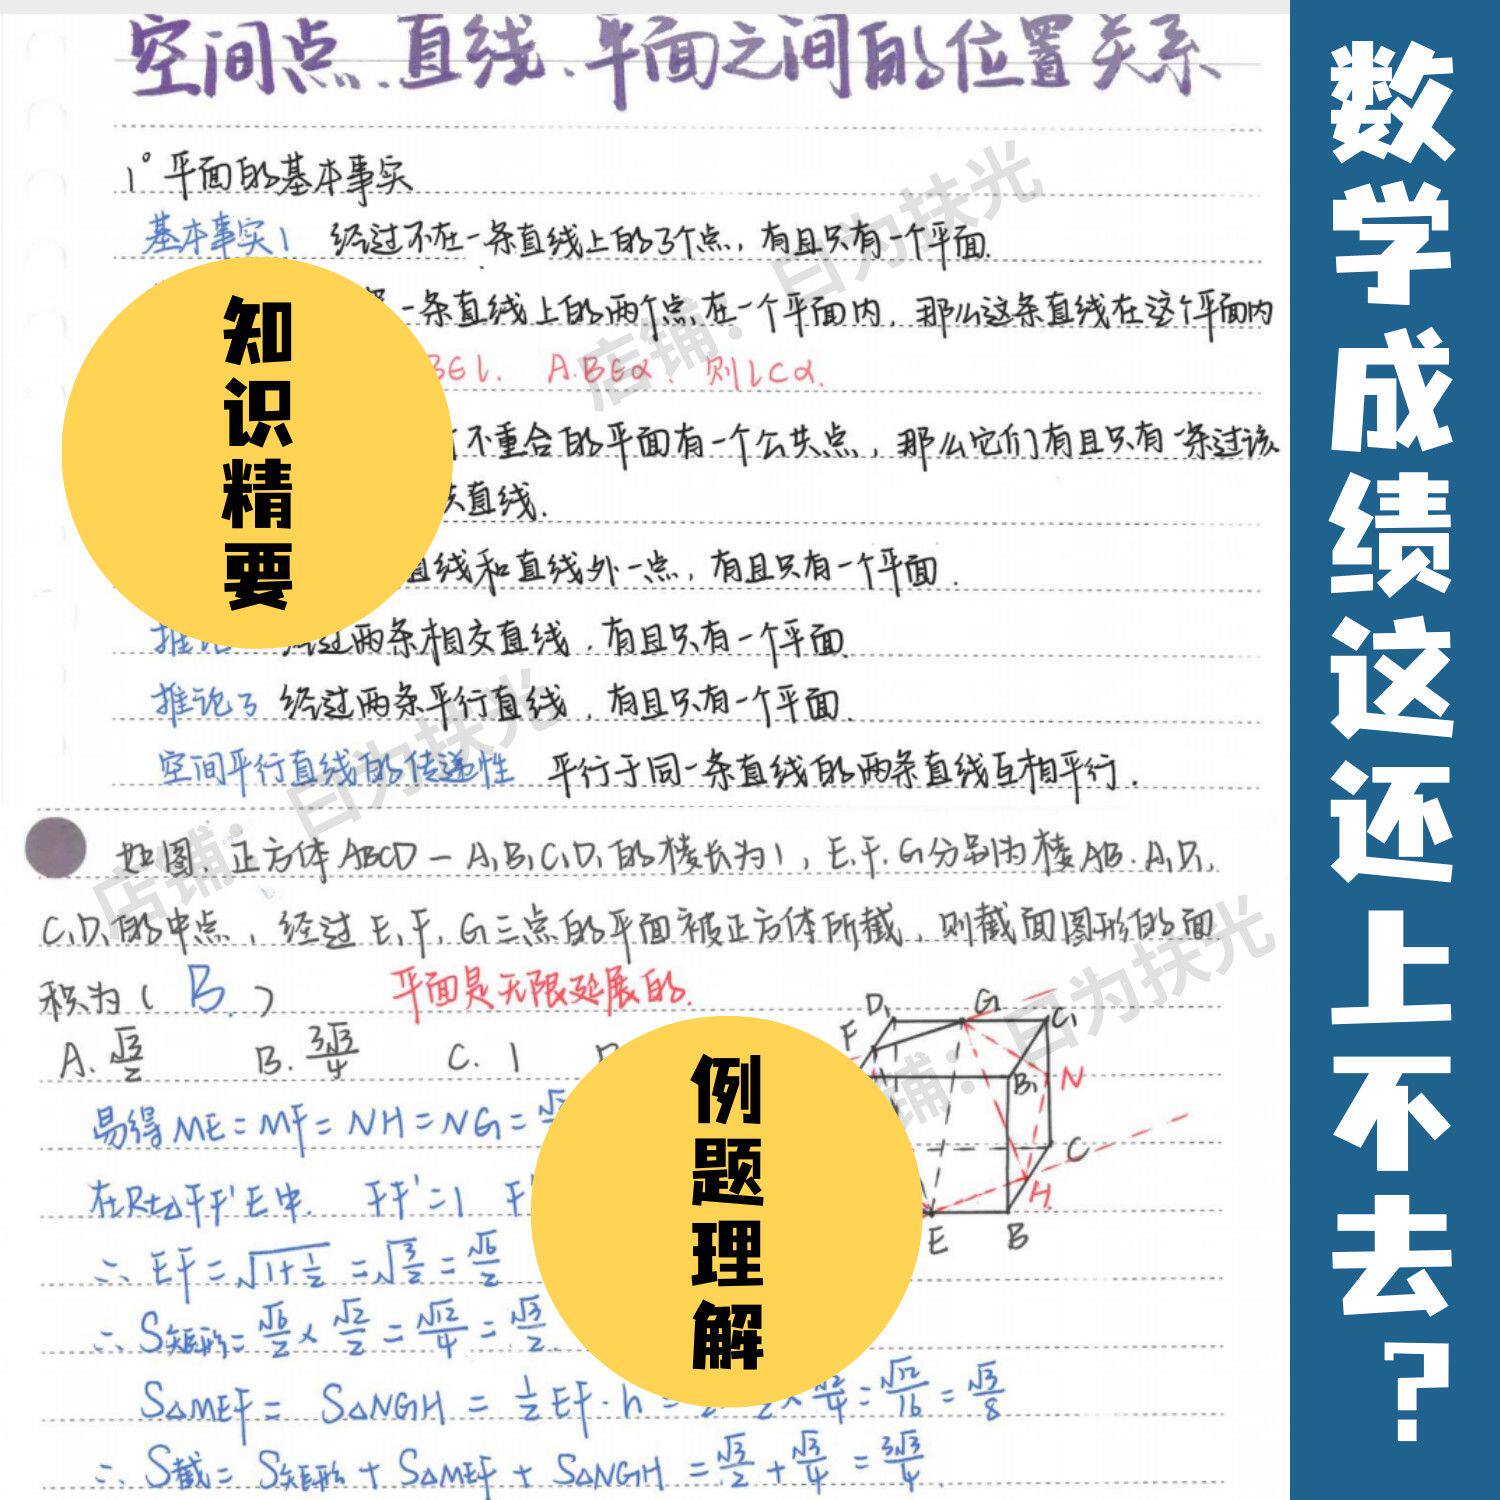 空间点、直线、平面之间的位置关系
1°平面的基本事实
基本事实1 经过不在一条直线上的3个点，有且只有一个平面.
一条直线上的两个点在一个平面内，那么这条直线在这个平面内
B∈l. A.B∈α. 则l⊂α.
不重合的平面有一个公共点，那么它们有且只有一条过该
直线.
直线和直线外一点，有且只有一个平面.
推论 经过两条相交直线，有且只有一个平面.
推论3 经过两条平行直线，有且只有一个平面.
空间平行直线的传递性 平行于同一条直线的两条直线互相平行.
如图，正方体ABCD－A₁B₁C₁D₁的棱长为1，E,F,G分别为棱AB.A₁D₁.
C₁D₁的中点，经过E,F,G三点的平面被正方体所截，则截面图形的面
积为（ B. ） 平面是无限延展的.
A. √3/2 B. 3√3/4 C. 1
易得ME=MF=NH=NG=
在Rt△FF'E中. FF'=1
∴ EF=√(1+1/2)=√(3/2)=√6/2
∴ S矩形=√6/2×√2/2=√12/4=√3/2.
S△MEF= S△NGH = 1/2 EF·h = √2/4=√12/16=√3/8
∴ S截= S矩形+S△MEF+S△NGH =√3/2+√3/4=3√3/4.
D₁ G C₁
F
B₁ N
C
H
E B
知识精要
例题理解
数学成绩这还上不去?
店铺：白为扶光
店铺：白为扶光
铺：白为扶光